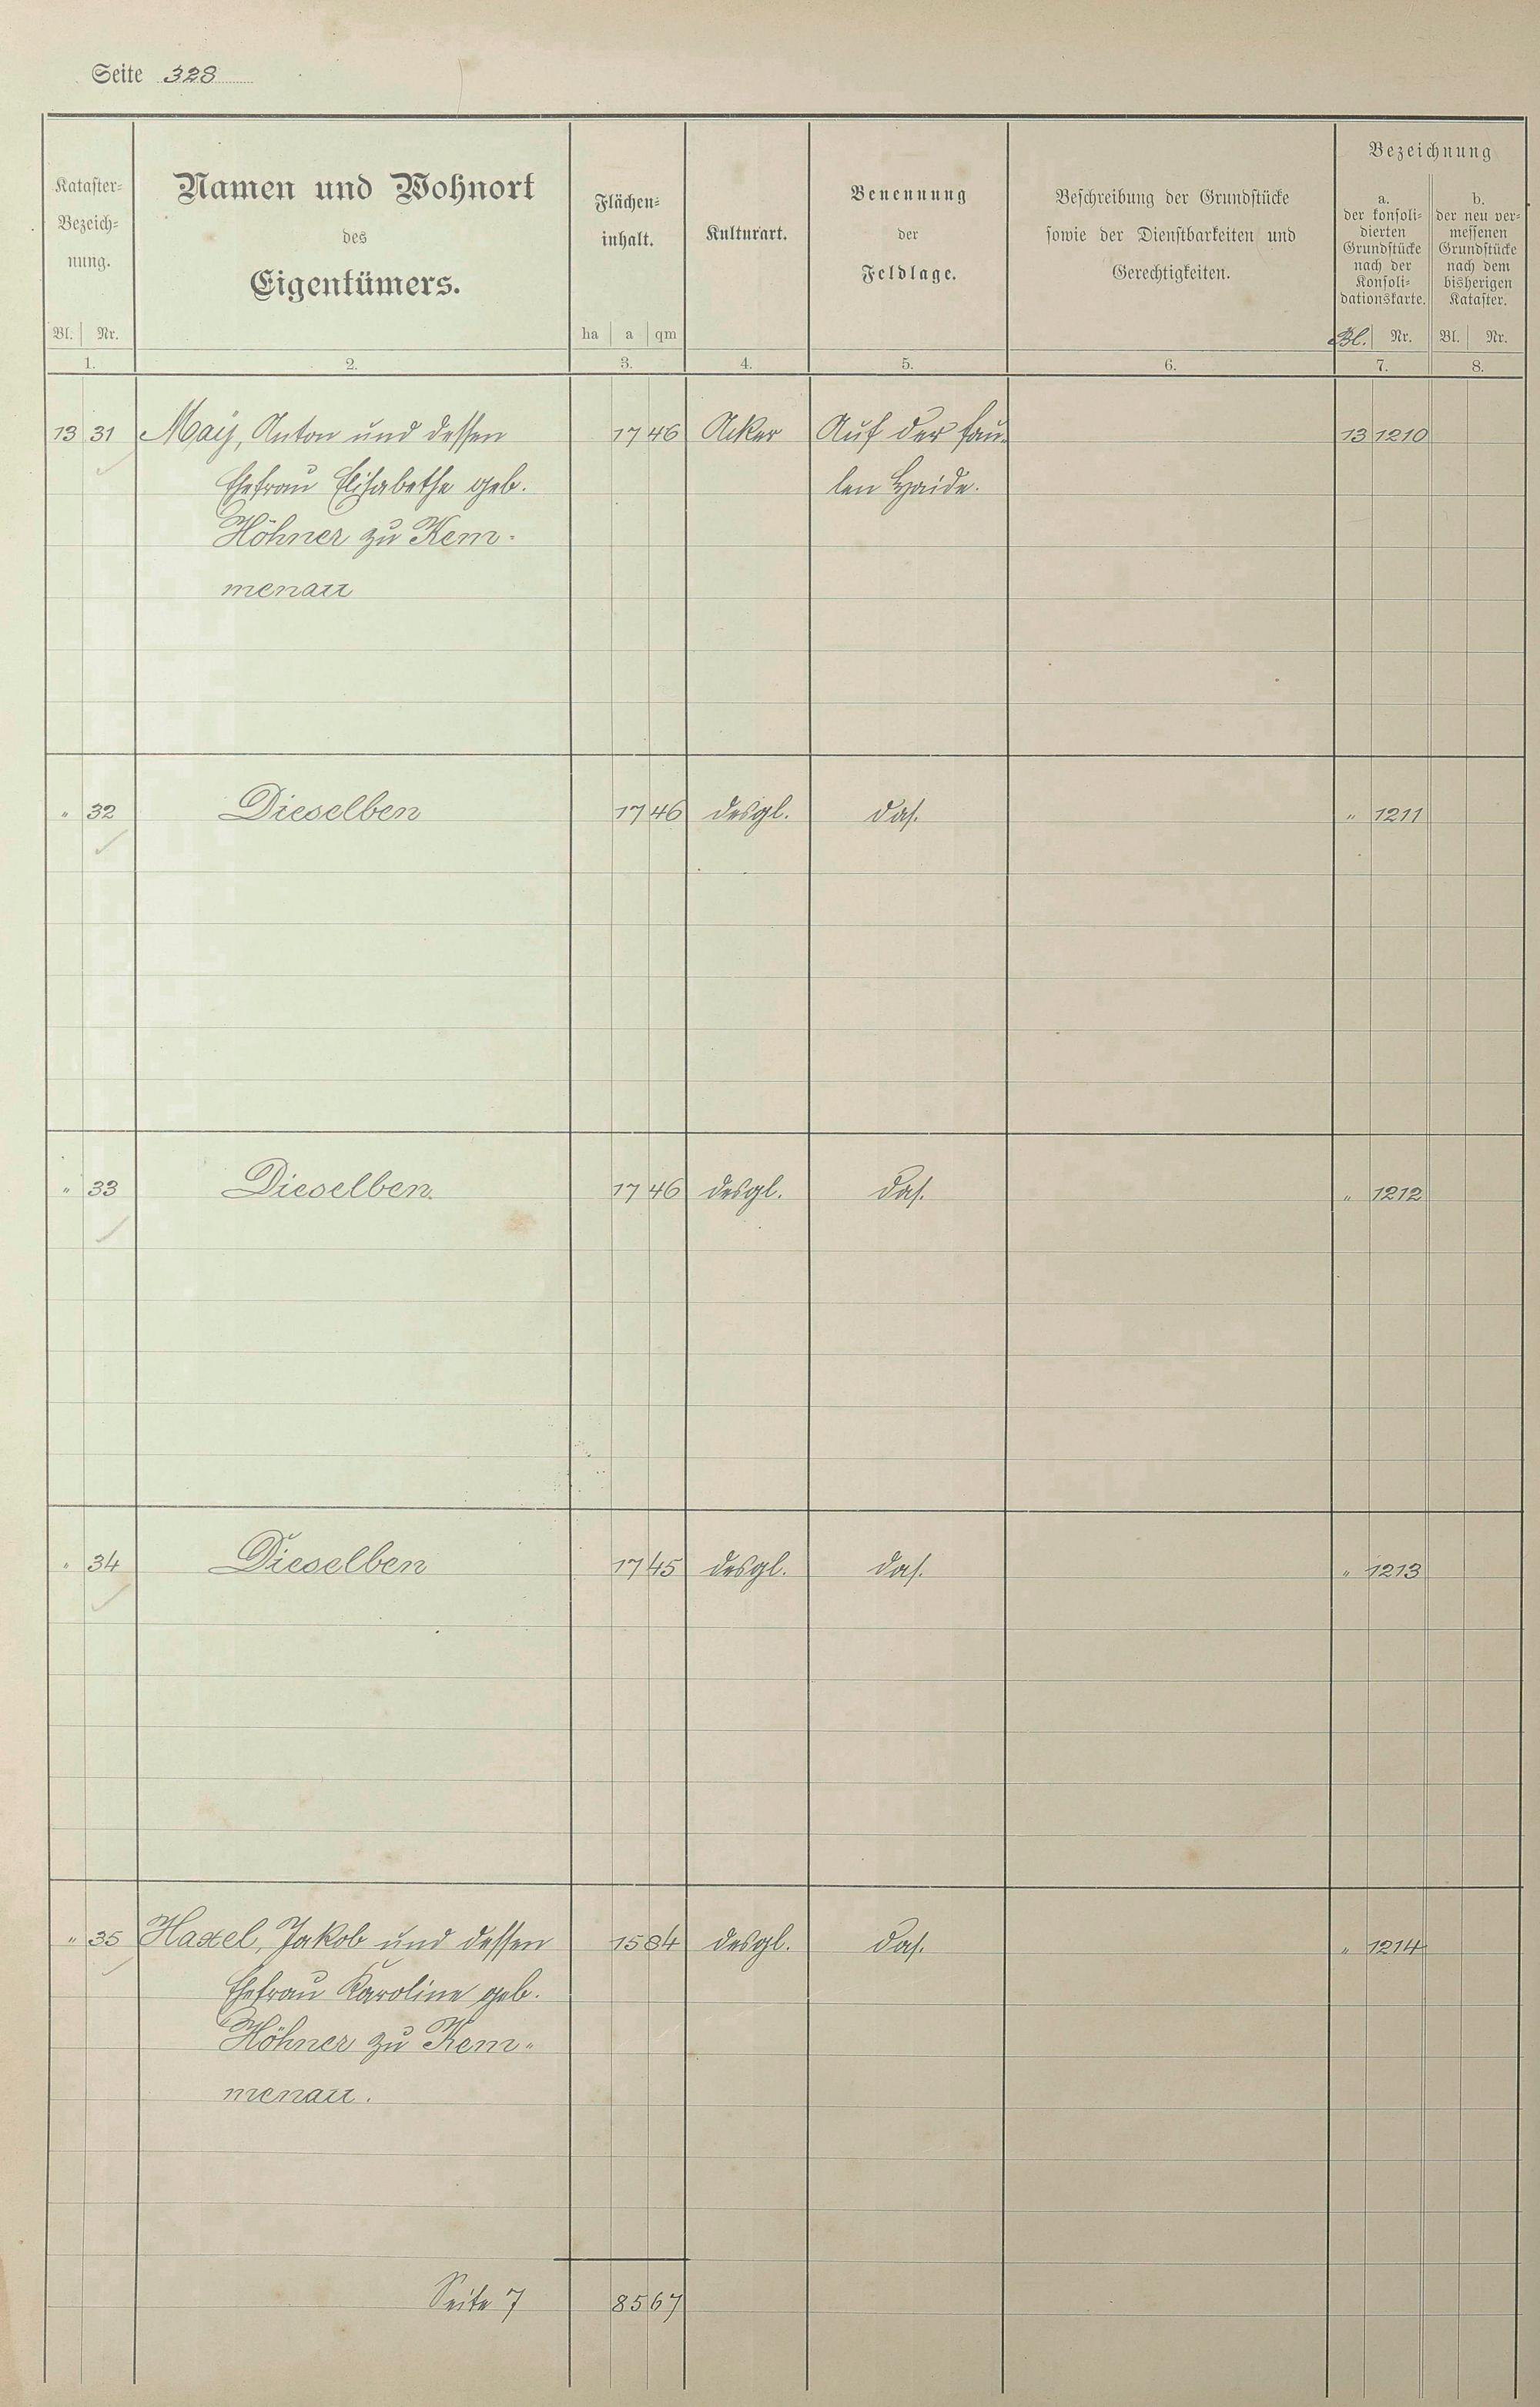 Seite 328
Kataster-
Bezeich-
nung.
Bl. Nr.
1.
Namen und Wohnort
des
Eigentümers.
2.
Flächen-
inhalt.
ha a qm
3.
Kulturart.
4.
Benennung
der
Feldlage.
5.
Beschreibung der Grundstücke
sowie der Dienstbarkeiten und
Gerechtigkeiten.
6.
Bezeichnung
a.
der konsoli-
dierten
Grundstücke
nach der
Konsoli-
dationskarte.
Bl. Nr.
7.
b.
der neu ver-
messenen
Grundstücke
nach dem
bisherigen
Kataster.
Bl. Nr.
8.
13 31 May, Anton und dessen 17 46 Acker Auf der fau- 13 1210
Ehefrau Elisabethe geb. len Haide.
Höhner zu Kem-
menau
" 32 Dieselben 17 46 desgl. das. " 1211
" 33 Dieselben 17 46 desgl. das. " 1212
" 34 Dieselben 17 45 desgl. das. " 1213
" 35 Haxel, Jakob und dessen 15 84 desgl. das. " 1214
Ehefrau Karoline geb.
Höhner zu Kem-
menau.
Seite 7 85 67